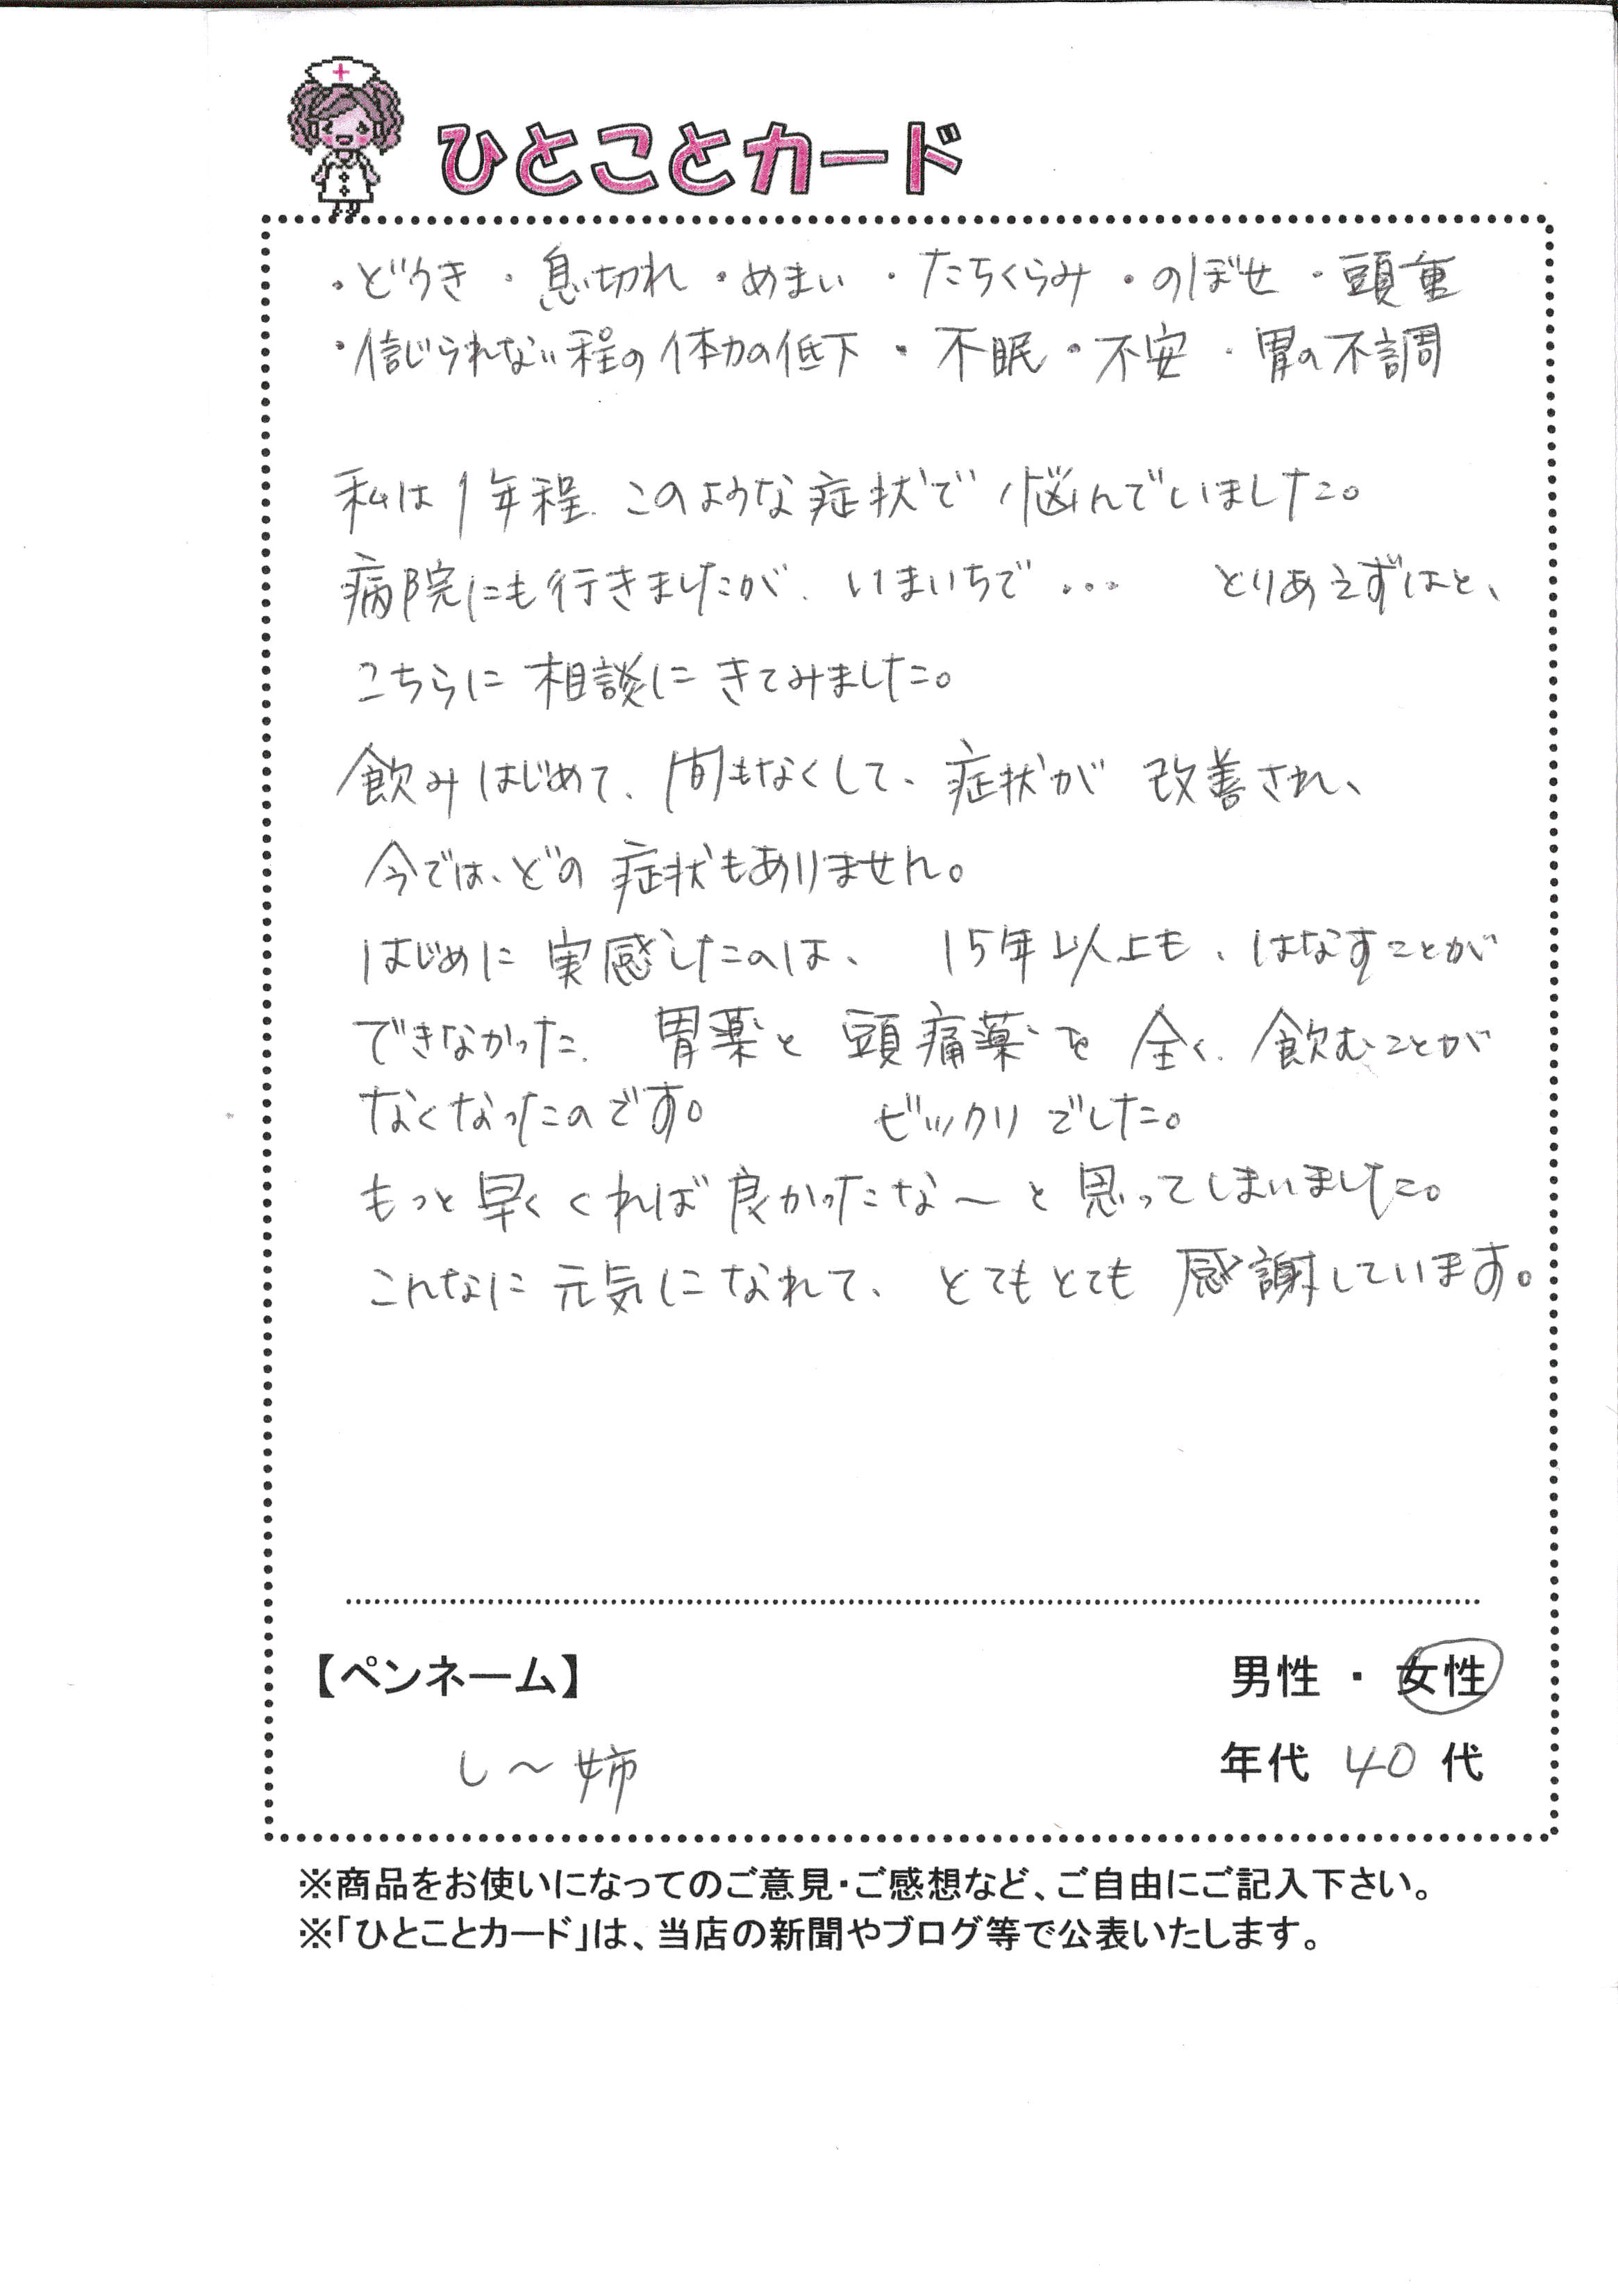 ひとことカード
・どうき ・息切れ ・めまい ・たちくらみ ・のぼせ ・頭重
・信じられない程の体力の低下 ・不眠 ・不安 ・胃の不調
私は1年程、このような症状で悩んでいました。
病院にも行きましたが、いまいちで... とりあえずはと、
こちらに相談にきてみました。
飲みはじめて、間もなくして、症状が改善され、
今では、どの症状もありません。
はじめに実感したのは、15年以上も、はなすことが
できなかった、胃薬と頭痛薬を全く、飲むことが
なくなったのです。 ビックリでした。
もっと早くくれば良かったな～と思ってしまいました。
こんなに元気になれて、とてもとても感謝しています。
【ペンネーム】 男性 ・ 女性
し～姉 年代 40 代
※商品をお使いになってのご意見・ご感想など、ご自由にご記入下さい。
※「ひとことカード」は、当店の新聞やブログ等で公表いたします。